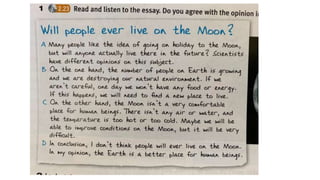 1 2.23 Read and listen to the essay. Do you agree with the opinion i
Will people ever live on the Moon?
A Many people like the idea of going on holiday to the Moon,
but will anyone actually live there in the future? Scientists
have different opinions on this subject.
B On the one hand, the number of people on Earth is growing
and we are destroying our natural environment. If we
aren't careful, one day we won't have any food or energy.
If this happens, we will need to find a new place to live.
C On the other hand, the Moon isn't a very comfortable
place for human beings. There isn't any air or water, and
the temperature is too hot or too cold. Maybe we will be
able to improve conditions on the Moon, but it will be very
difficult.
D In conclusion, I don't think people will ever live on the Moon.
In my opinion, the Earth is a better place for human beings.